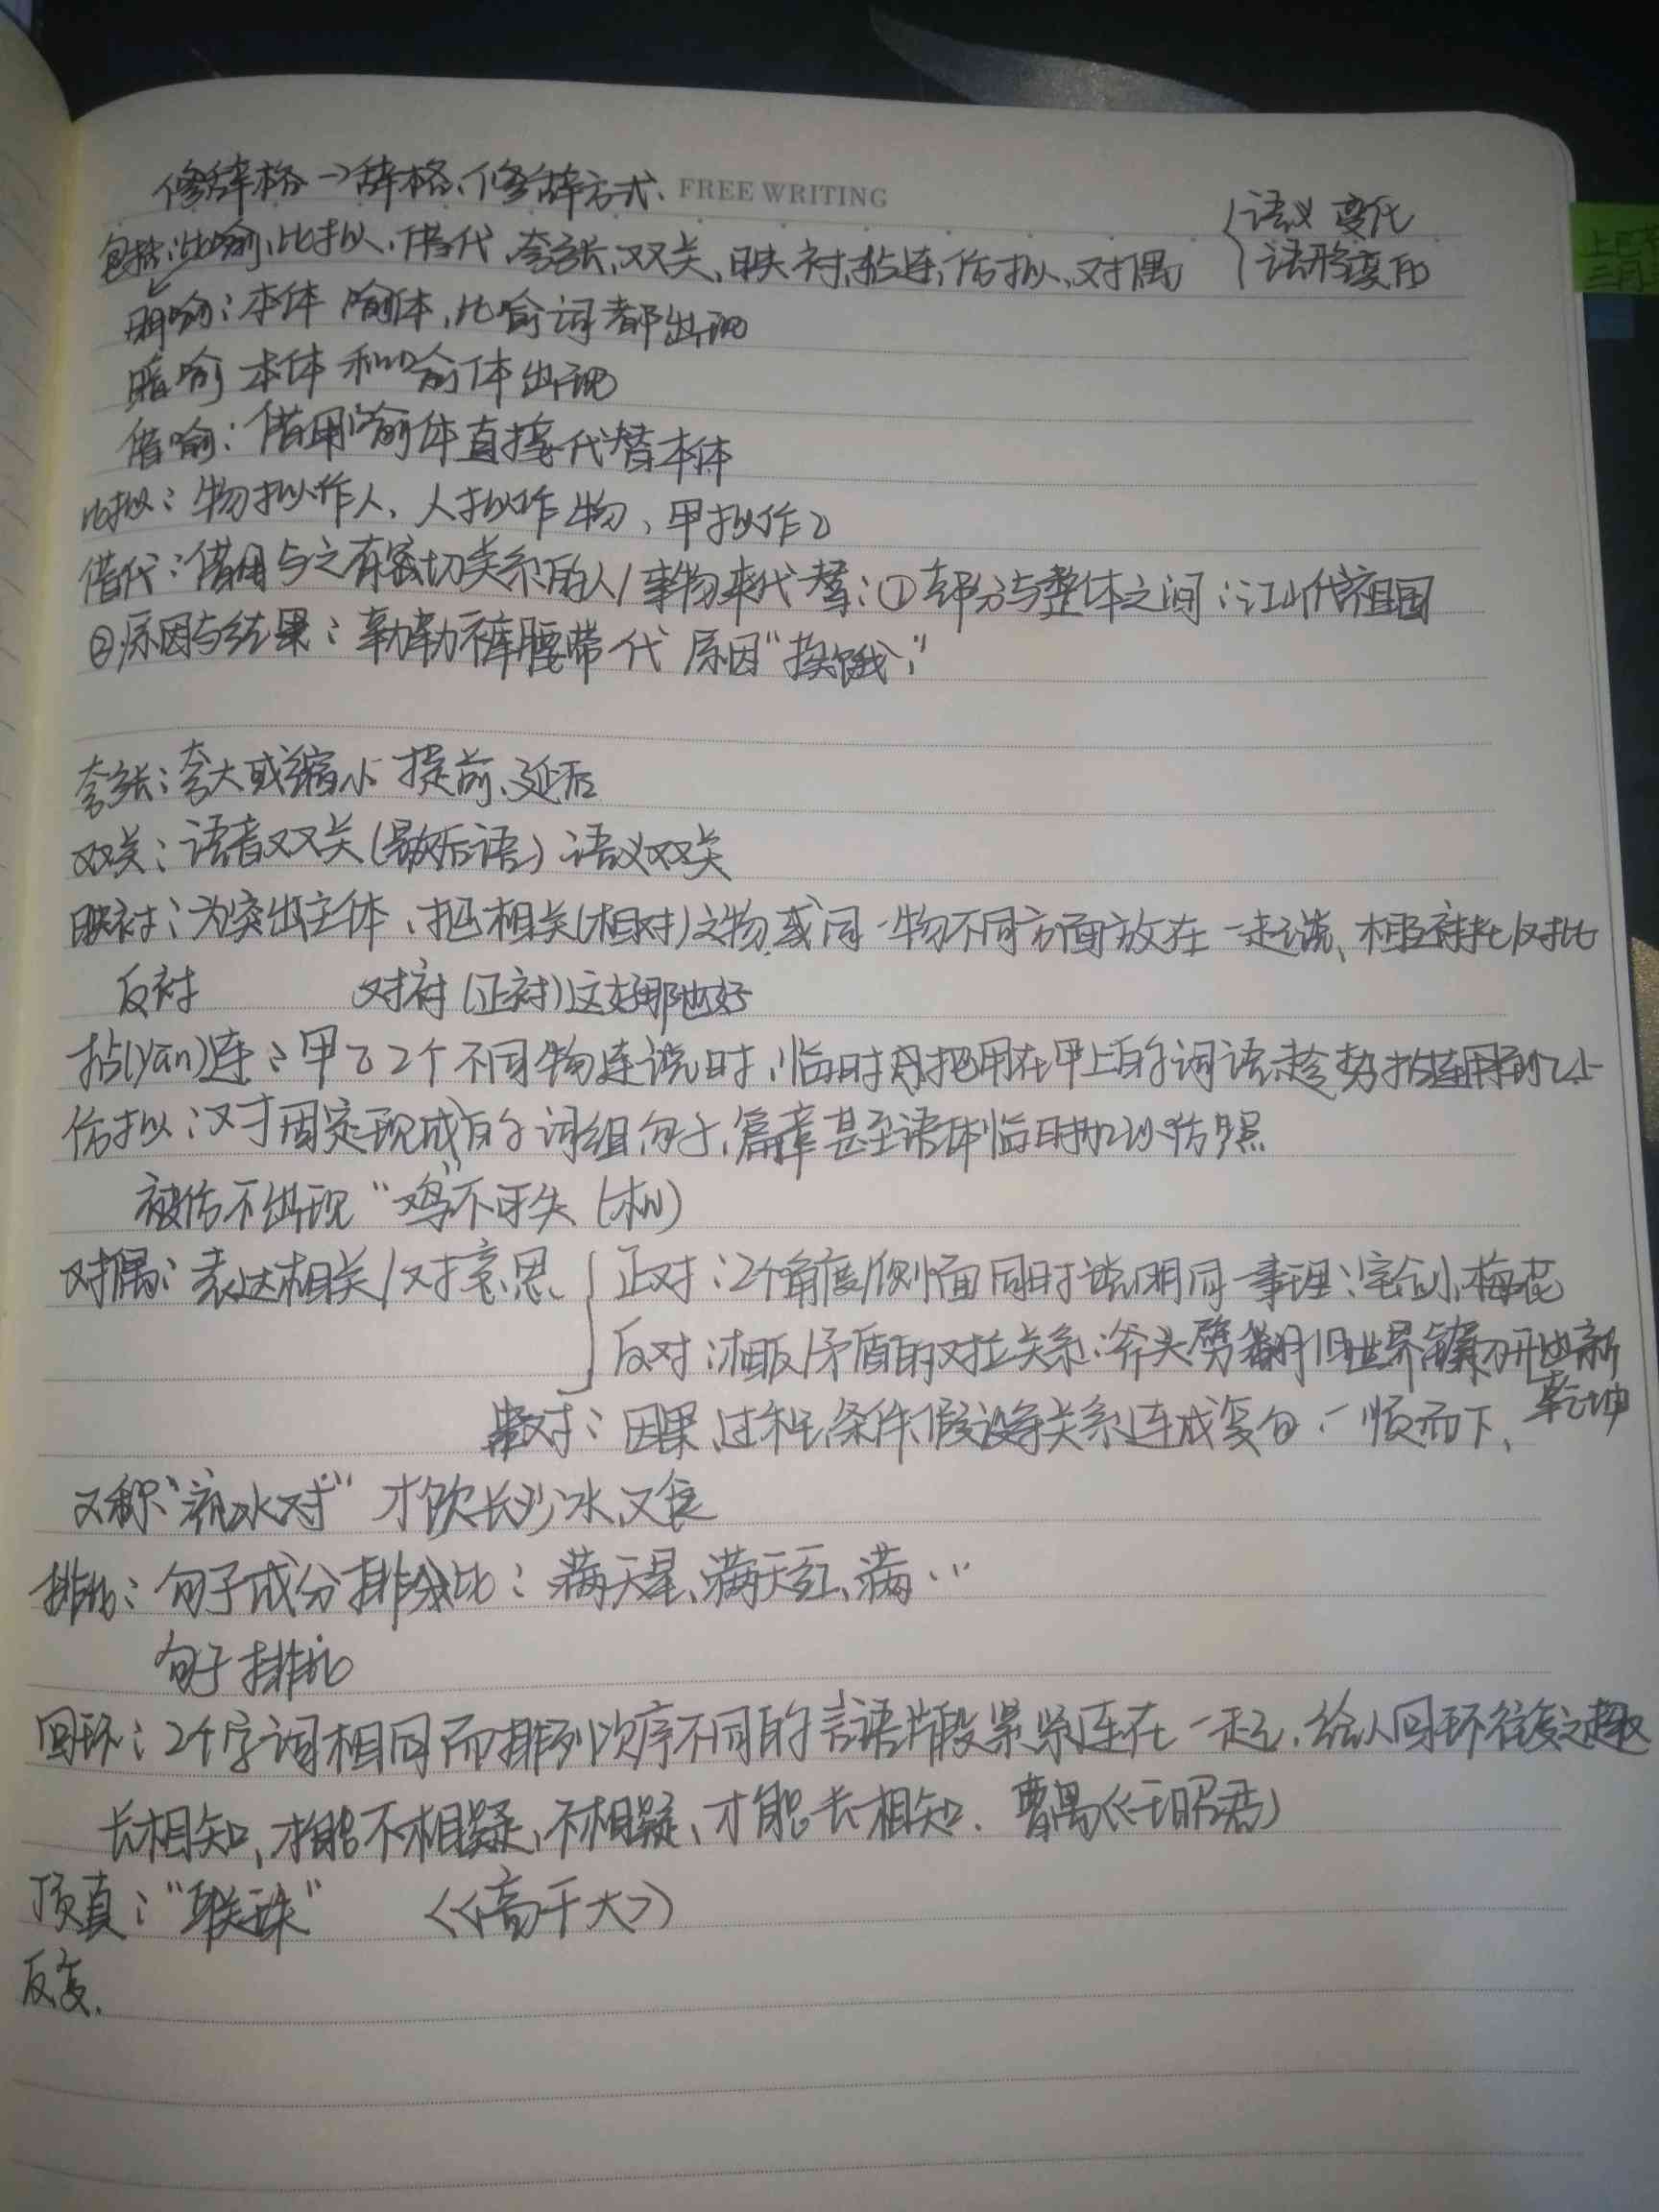 修辞格→辞格、修辞方式、 FREE WRITING
语义变化
语形变化
上巳
三月
包括:比喻、比拟、借代、夸张、双关、映衬、拈连、仿拟、对偶
明喻:本体 喻体、比喻词都出现
暗喻 本体和喻体出现
借喻:借用喻体直接代替本体
比拟:物拟作人、人拟作物、甲拟作乙
借代:借用与之有密切关系的人/事物来代替:①部分与整体之间:江山代祖国
②原因与结果:勒勒裤腰带代 原因“挨饿”
夸张:夸大或缩小 提前、延后
双关:语音双关(歇后语) 语义双关
映衬:为突出主体、把相关(相对)之物或同一物不同方面放在一起说、相互衬托/对比
反衬 对衬(正衬)这好那也好
拈(yan)连:甲乙2个不同物连说时,临时把用在甲上的词语趁势拈连用到乙上
仿拟:对固定现成的词组、句子、篇章甚至语体临时加以仿照
被仿不出现“鸡”不可失(机)
对偶:表达相关/对意思、
正对:2个角度/侧面同时说明同一事理:宝剑、梅花
反对:相反/矛盾的对立关系:斧头劈翻旧世界 镰刀开出新
乾坤
串对:因果、过程、条件、假设等关系连成复句、一顺而下、
又称“流水对” 才饮长沙水,又食
排比:句子成分排比:满天星、满天红、满…
句子排比
回环:2个字词相同而排列次序不同的言语片段紧紧连在一起,给人回环往复之趣
长相知,才能不相疑、不相疑、才能长相知. 曹禺《王昭君》
顶真:“联珠” 《高干大》
反复.